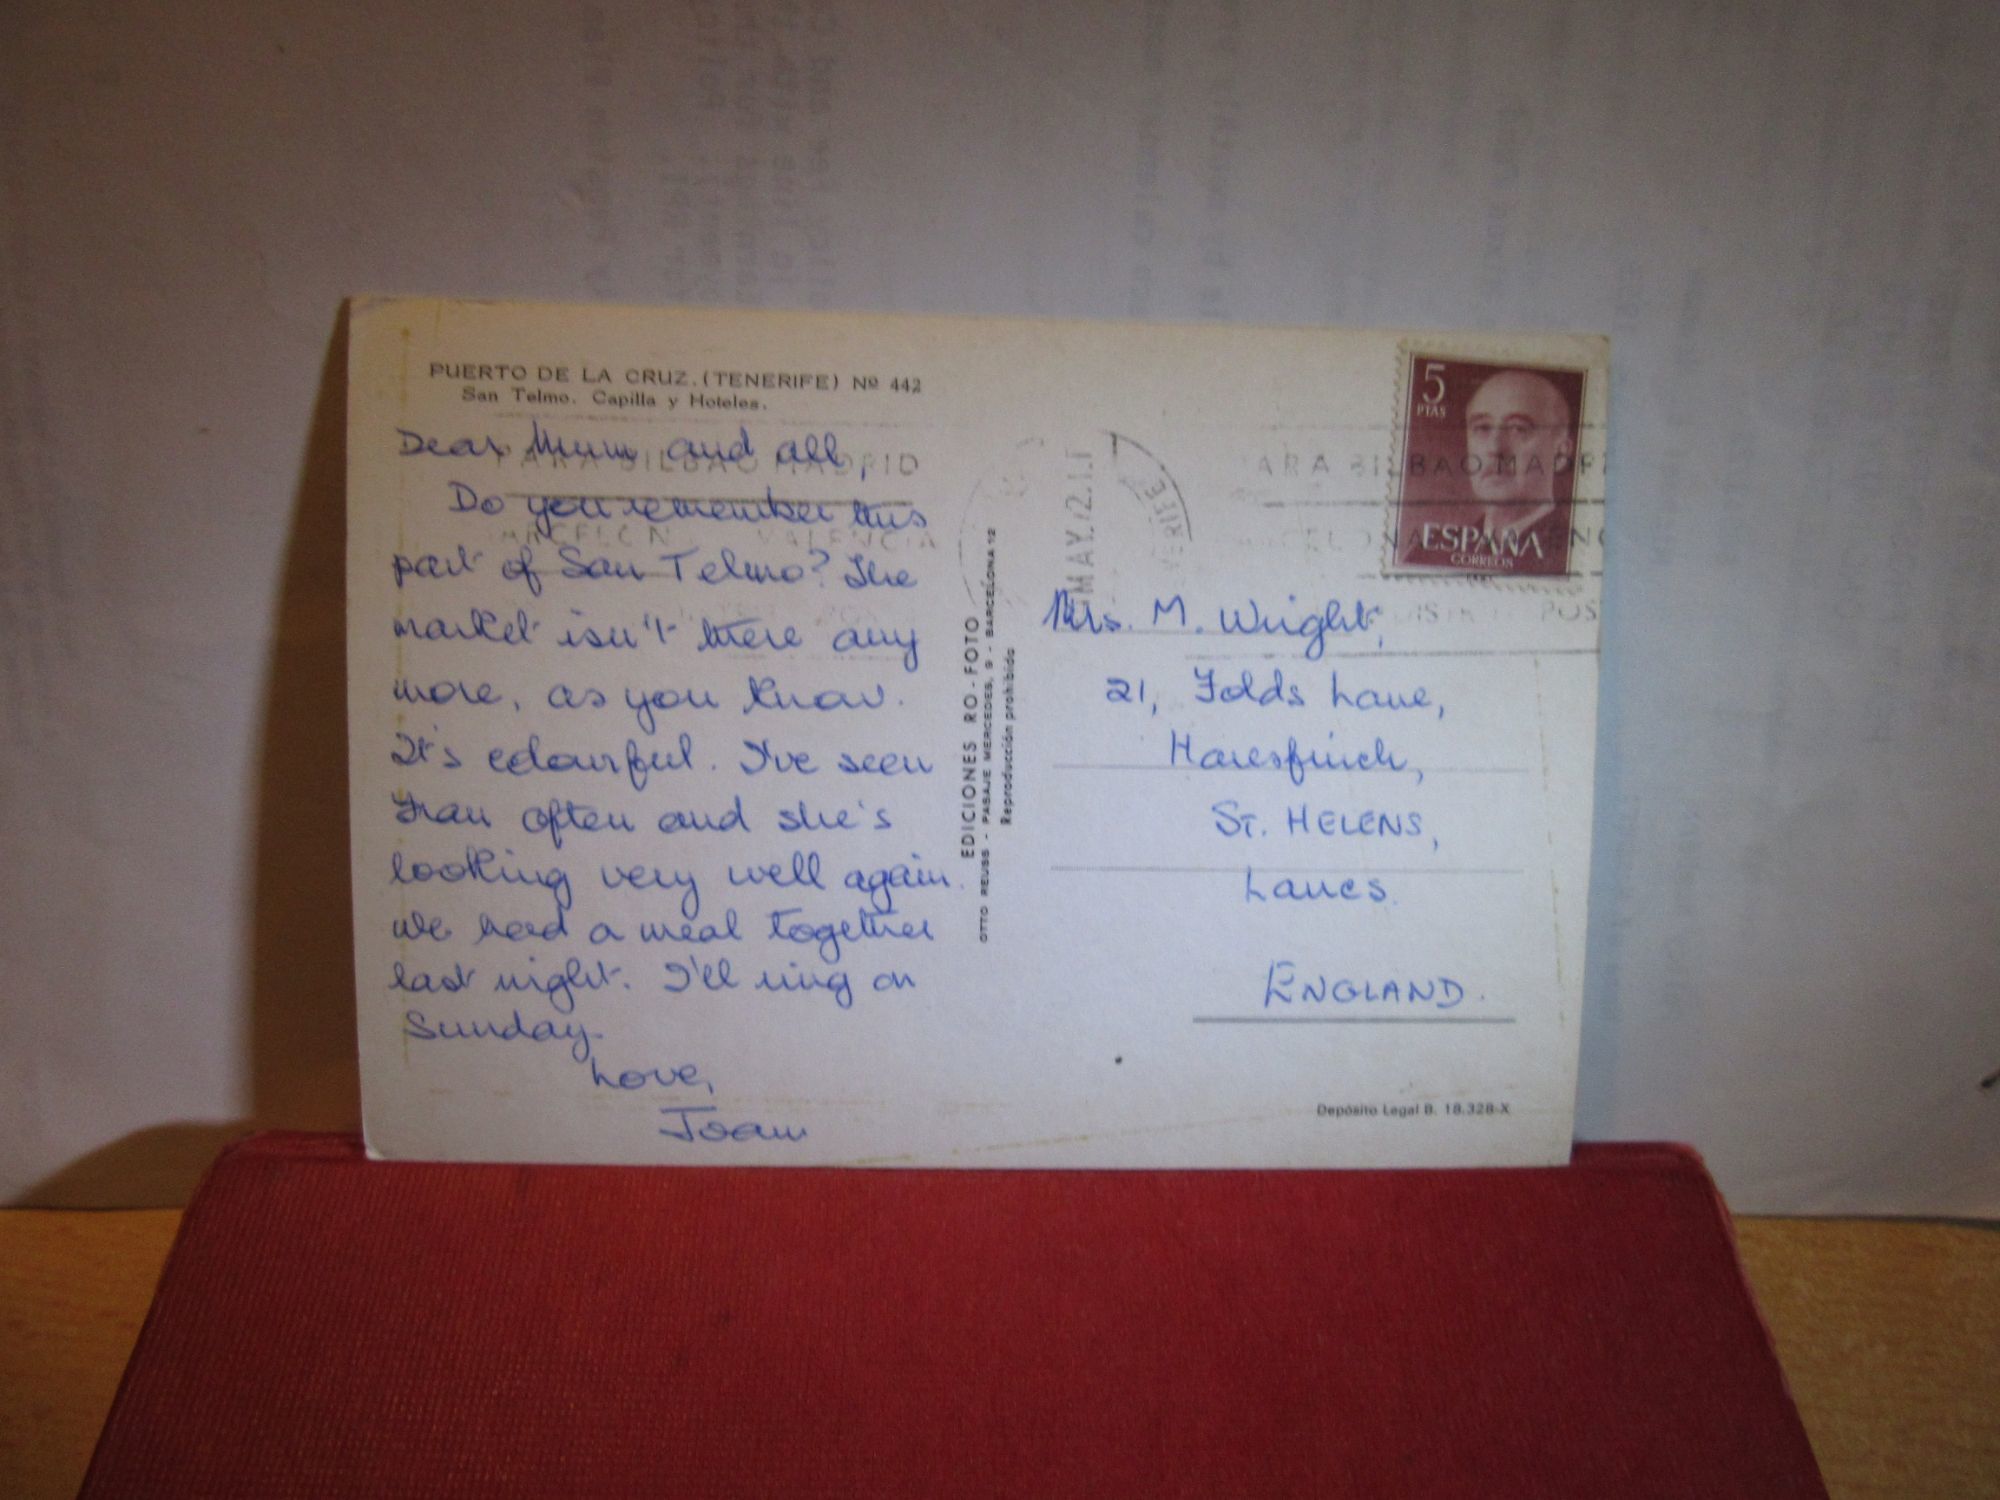 PUERTO DE LA CRUZ. (TENERIFE) Nº 442
San Telmo. Capilla y Hoteles.
Dear Mum and all,
Do you remember this
part of San Telmo? The
market isn't there any
more, as you know.
It's colourful. I've seen
Fran often and she's
looking very well again.
We had a meal together
last night. I'll ring on
Sunday.
Love,
Joan
EDICIONES RO-FOTO
OTTO REUSS - PASAJE MERCEDES, 9 - BARCELONA 12
Reproducción prohibida
5
PTAS
ESPAÑA
CORREOS
PARA BILBAO MADRID
VALENCIA
MAY.72.11
Mrs. M. Wright,
21, Folds Lane,
Haresfinch,
ST. HELENS,
Lancs.
ENGLAND.
Depósito Legal B. 18.328-X